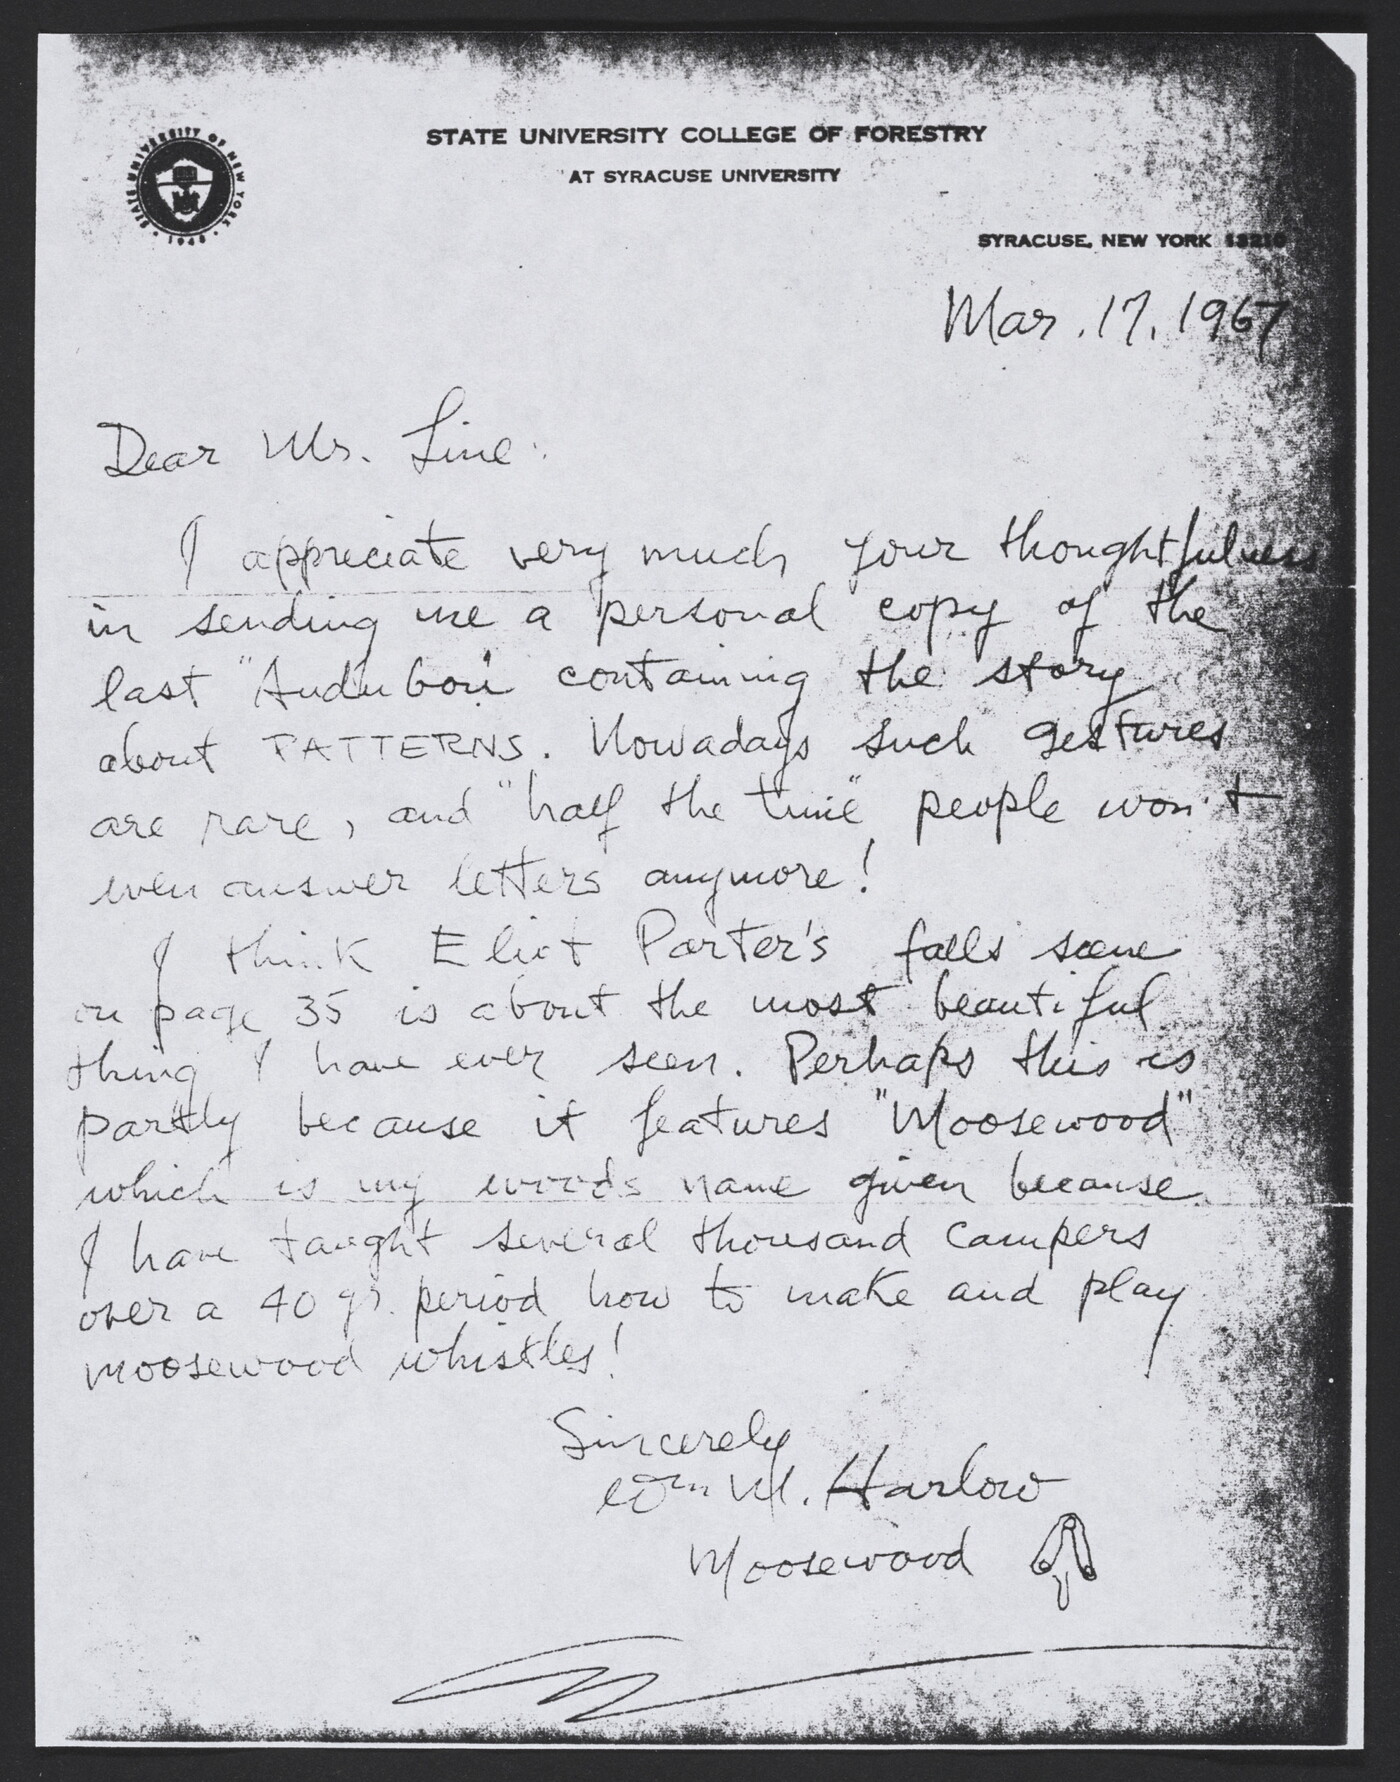 STATE UNIVERSITY OF NEW YORK • 1948 •
STATE UNIVERSITY COLLEGE OF FORESTRY
AT SYRACUSE UNIVERSITY
SYRACUSE, NEW YORK 13210
Mar. 17, 1967
Dear Mr. Line:
I appreciate very much your thoughtfulness
in sending me a personal copy of the
last "Audubon" containing the story
about PATTERNS. Nowadays such gestures
are rare, and "half the time" people won't
even answer letters anymore!
I think Eliot Porter's falls scene
on page 35 is about the most beautiful
thing I have ever seen. Perhaps this is
partly because it features "Moosewood"
which is my woods name given because
I have taught several thousand campers
over a 40 yr. period how to make and play
moosewood whistles!
Sincerely
Wm M. Harlow
Moosewood